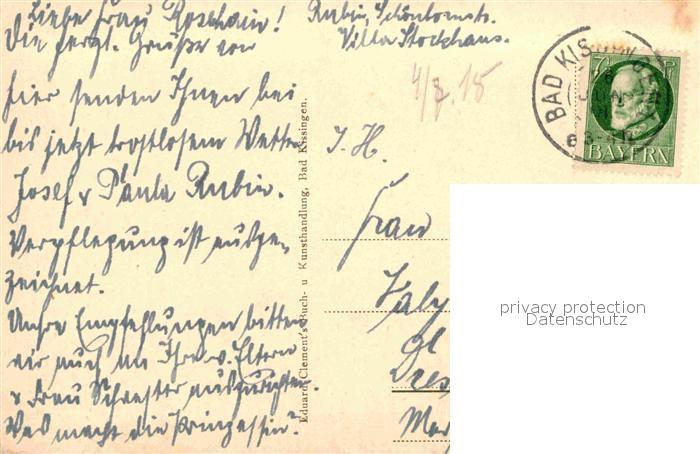 Liebe Frau Rosshain!
Die herzl. Grüße von
hier senden Ihnen bei
bis jetzt trostlosem Wetter
Josef & Paula Rubin.
Verpflegung ist ausge-
zeichnet.
Unsre Empfehlungen bitten
wir auch an Ihre v. Eltern
& Frau Schwester auszurichten.
Was macht die Prinzessin?
Rubin, Schönbornstr.
Villa Stockhaus.
4/8.15
BAD KISSINGEN
BAYERN
Eduard Clement's Buch- u Kunsthandlung, Bad Kissingen.
I. H.
Frau
privacy protection
Datenschutz